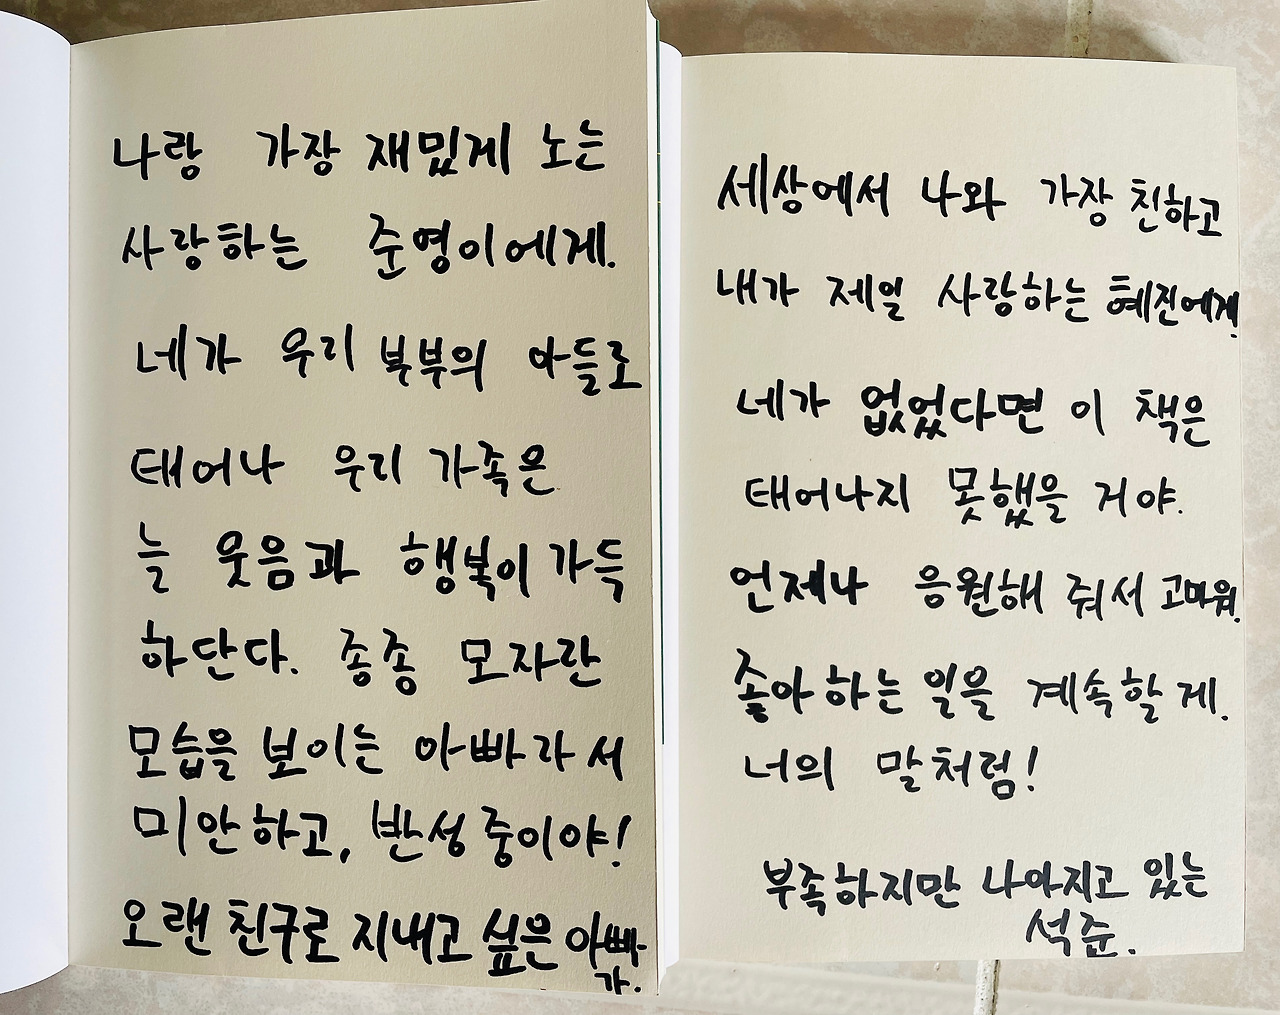 나랑 가장 재밌게 노는
사랑하는 준영이에게.
네가 우리 부부의 아들로
태어나 우리 가족은
늘 웃음과 행복이 가득
하단다. 종종 모자란
모습을 보이는 아빠라서
미안하고, 반성 중이야!
오랜 친구로 지내고 싶은 아빠
가.
세상에서 나와 가장 친하고
내가 제일 사랑하는 혜진에게!
네가 없었다면 이 책은
태어나지 못했을 거야.
언제나 응원해 줘서 고마워.
좋아하는 일을 계속할게.
너의 말처럼!
부족하지만 나아지고 있는
석준.